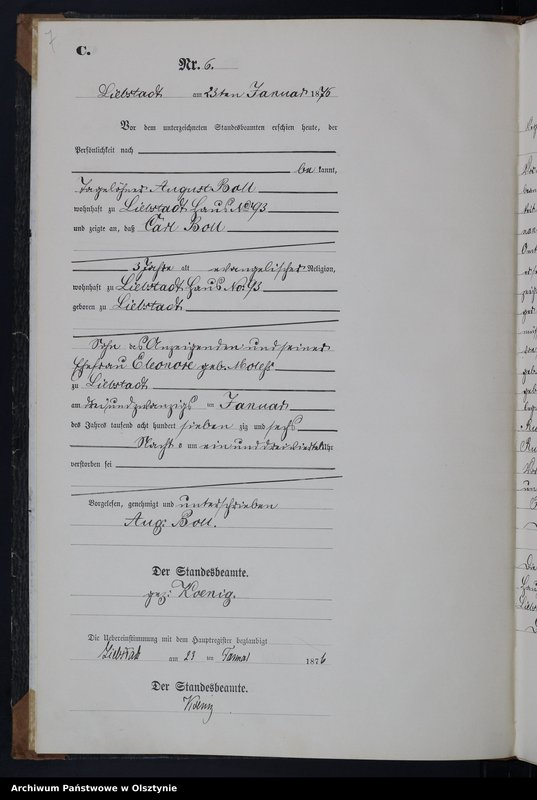 7
C.
Nr. 6.
Liebstadt am 23ten Januar 1876
Vor dem unterzeichneten Standesbeamten erschien heute, der
Persönlichkeit nach
be kannt,
Tagelöhner August Boll
wohnhaft zu Liebstadt Haus No 93
und zeigte an, daß Carl Boll
3 Jahre alt evangelischer Religion,
wohnhaft zu Liebstadt Haus No. 93
geboren zu Liebstadt
Sohn des Anzeigenden und seiner
Ehefrau Eleonore geb.
zu Liebstadt
am dreiundzwanzigs ten Januar
des Jahres tausend acht hundert sieben zig und sechs
Nachts um ein und dreiviertel Uhr
verstorben sei
Vorgelesen, genehmigt und unterschrieben
Aug: Boll.
Der Standesbeamte.
gez: Koenig.
Die Uebereinstimmung mit dem Hauptregister beglaubigt
Liebstadt am 23 ten Januar 1876
Der Standesbeamte.
Koenig
Archiwum Państwowe w Olsztynie